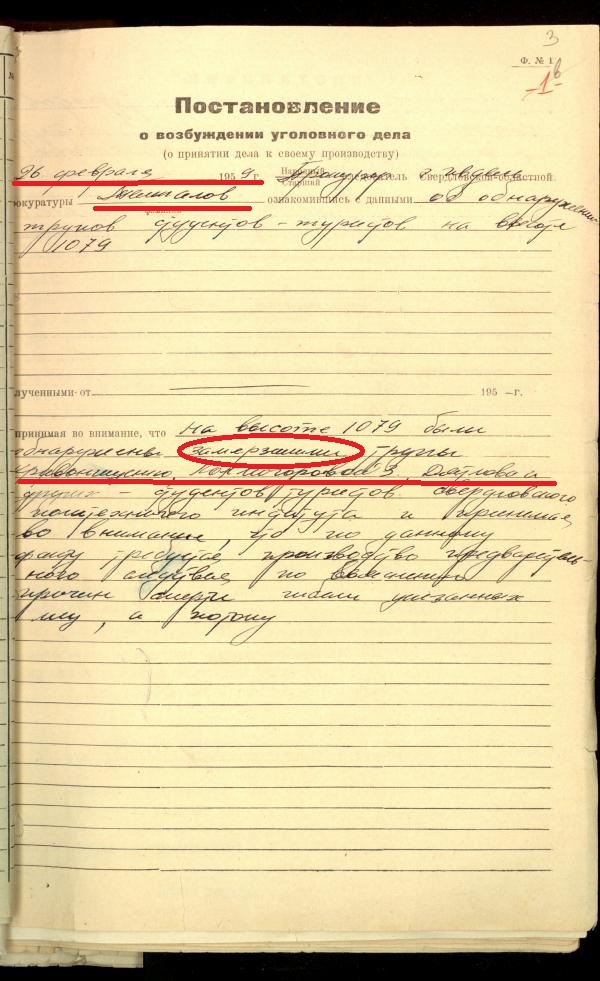 3
Ф. № 1
-1-
Постановление
о возбуждении уголовного дела
(о принятии дела к своему производству)
26 февраля 1959 г. Народный Старший Прокурор следователь г. Ивделя Свердловской областной
рокуратуры Темпалов ознакомившись с данными об обнаружении
фамилия
трупов студентов-туристов на высоте
1079
лученными от 195 -г.
принимая во внимание, что на высоте 1079 были
обнаружены замерзшими трупы
Кривонищенко, Колмогоровой З, Дятлова и
других - студентов туристов свердловского
политехнического института и принимая
во внимание, что по данному
факту требуется производство предваритель-
ного следствия по выяснению
причин смерти указанных
лиц, а потому